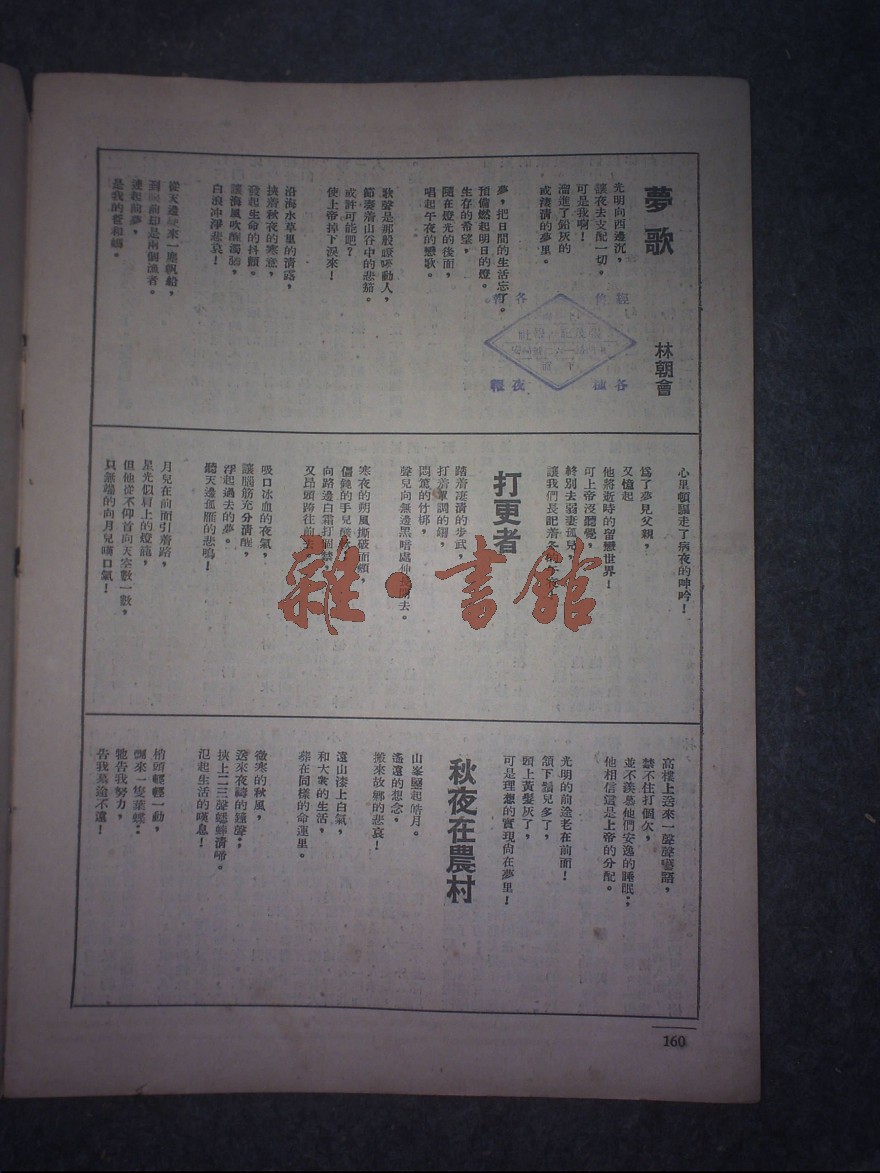 夢歌
林朝會
光明向西邊沉，
讓夜去支配一切。
可是我啊！
溜進了鉛灰的
或淒清的夢里。
夢，把日間的生活忘了。
預備燃起明日的燈。
生存的希望，
隨在燈光的後面，
唱起午夜的戀歌。
歌聲是那般嘹喨動人，
節奏着山谷中的悲茄。
或許可能吧？
使上帝掉下淚來！
沿海水草里的清露，
挾着秋夜的寒意，
發起生命的抖顫。
讓海風吹醒
白浪冲淨悲哀！
從天邊 來一塵帆船，
到 前却是兩個漁者。
連起前夢，
是我的爸和媽。
心里頓驅走了病夜的呻吟！
爲了夢見父親，
又憶起
他將逝時的留戀世界！
可上帝沒聽覺，
終別去弱妻孤兒，
讓我們長記着冬
打更者
踏着淒清的步武，
打着單調的鑼，
悶篤的竹梆，
聲兒向無邊黑暗處伸 開去。
寒夜的朔風撕破面頰，
僵 的手兒
向路邊白霜打個
又昂頭跨往前去
吸口冰血的夜氣，
讓腦筋充分清醒，
浮起過去的夢。
聽天邊孤雁的悲鳴！
月兒在前面引着路，
星光似肩上的燈籠，
但他從不仰首向天空數一數，
只無端的向月兒嘆口氣！
高樓上送來一聲聲囈語，
禁不住打個欠，
並不羨慕他們安逸的睡眠；
他相信這是上帝的分配。
光明的前途老在前面！
頷下鬚兒多了，
頭上黃髮灰了，
可是理想的實現尙在夢里！
秋夜在農村
山峯豎起皓月。
遙遠的想念，
搬來故鄉的悲哀！
遠山漆上白氣，
和大衆的生活，
葬在同樣的命運里。
微寒的秋風，
送來夜禱的鐘聲；
挾上二三聲蟋蟀清啼。
氾起生活的嘆息！
梢頭輕輕一動，
飄來一隻葉蝶：
牠告我努力，
告我墓途不遠！
雜·書館
160